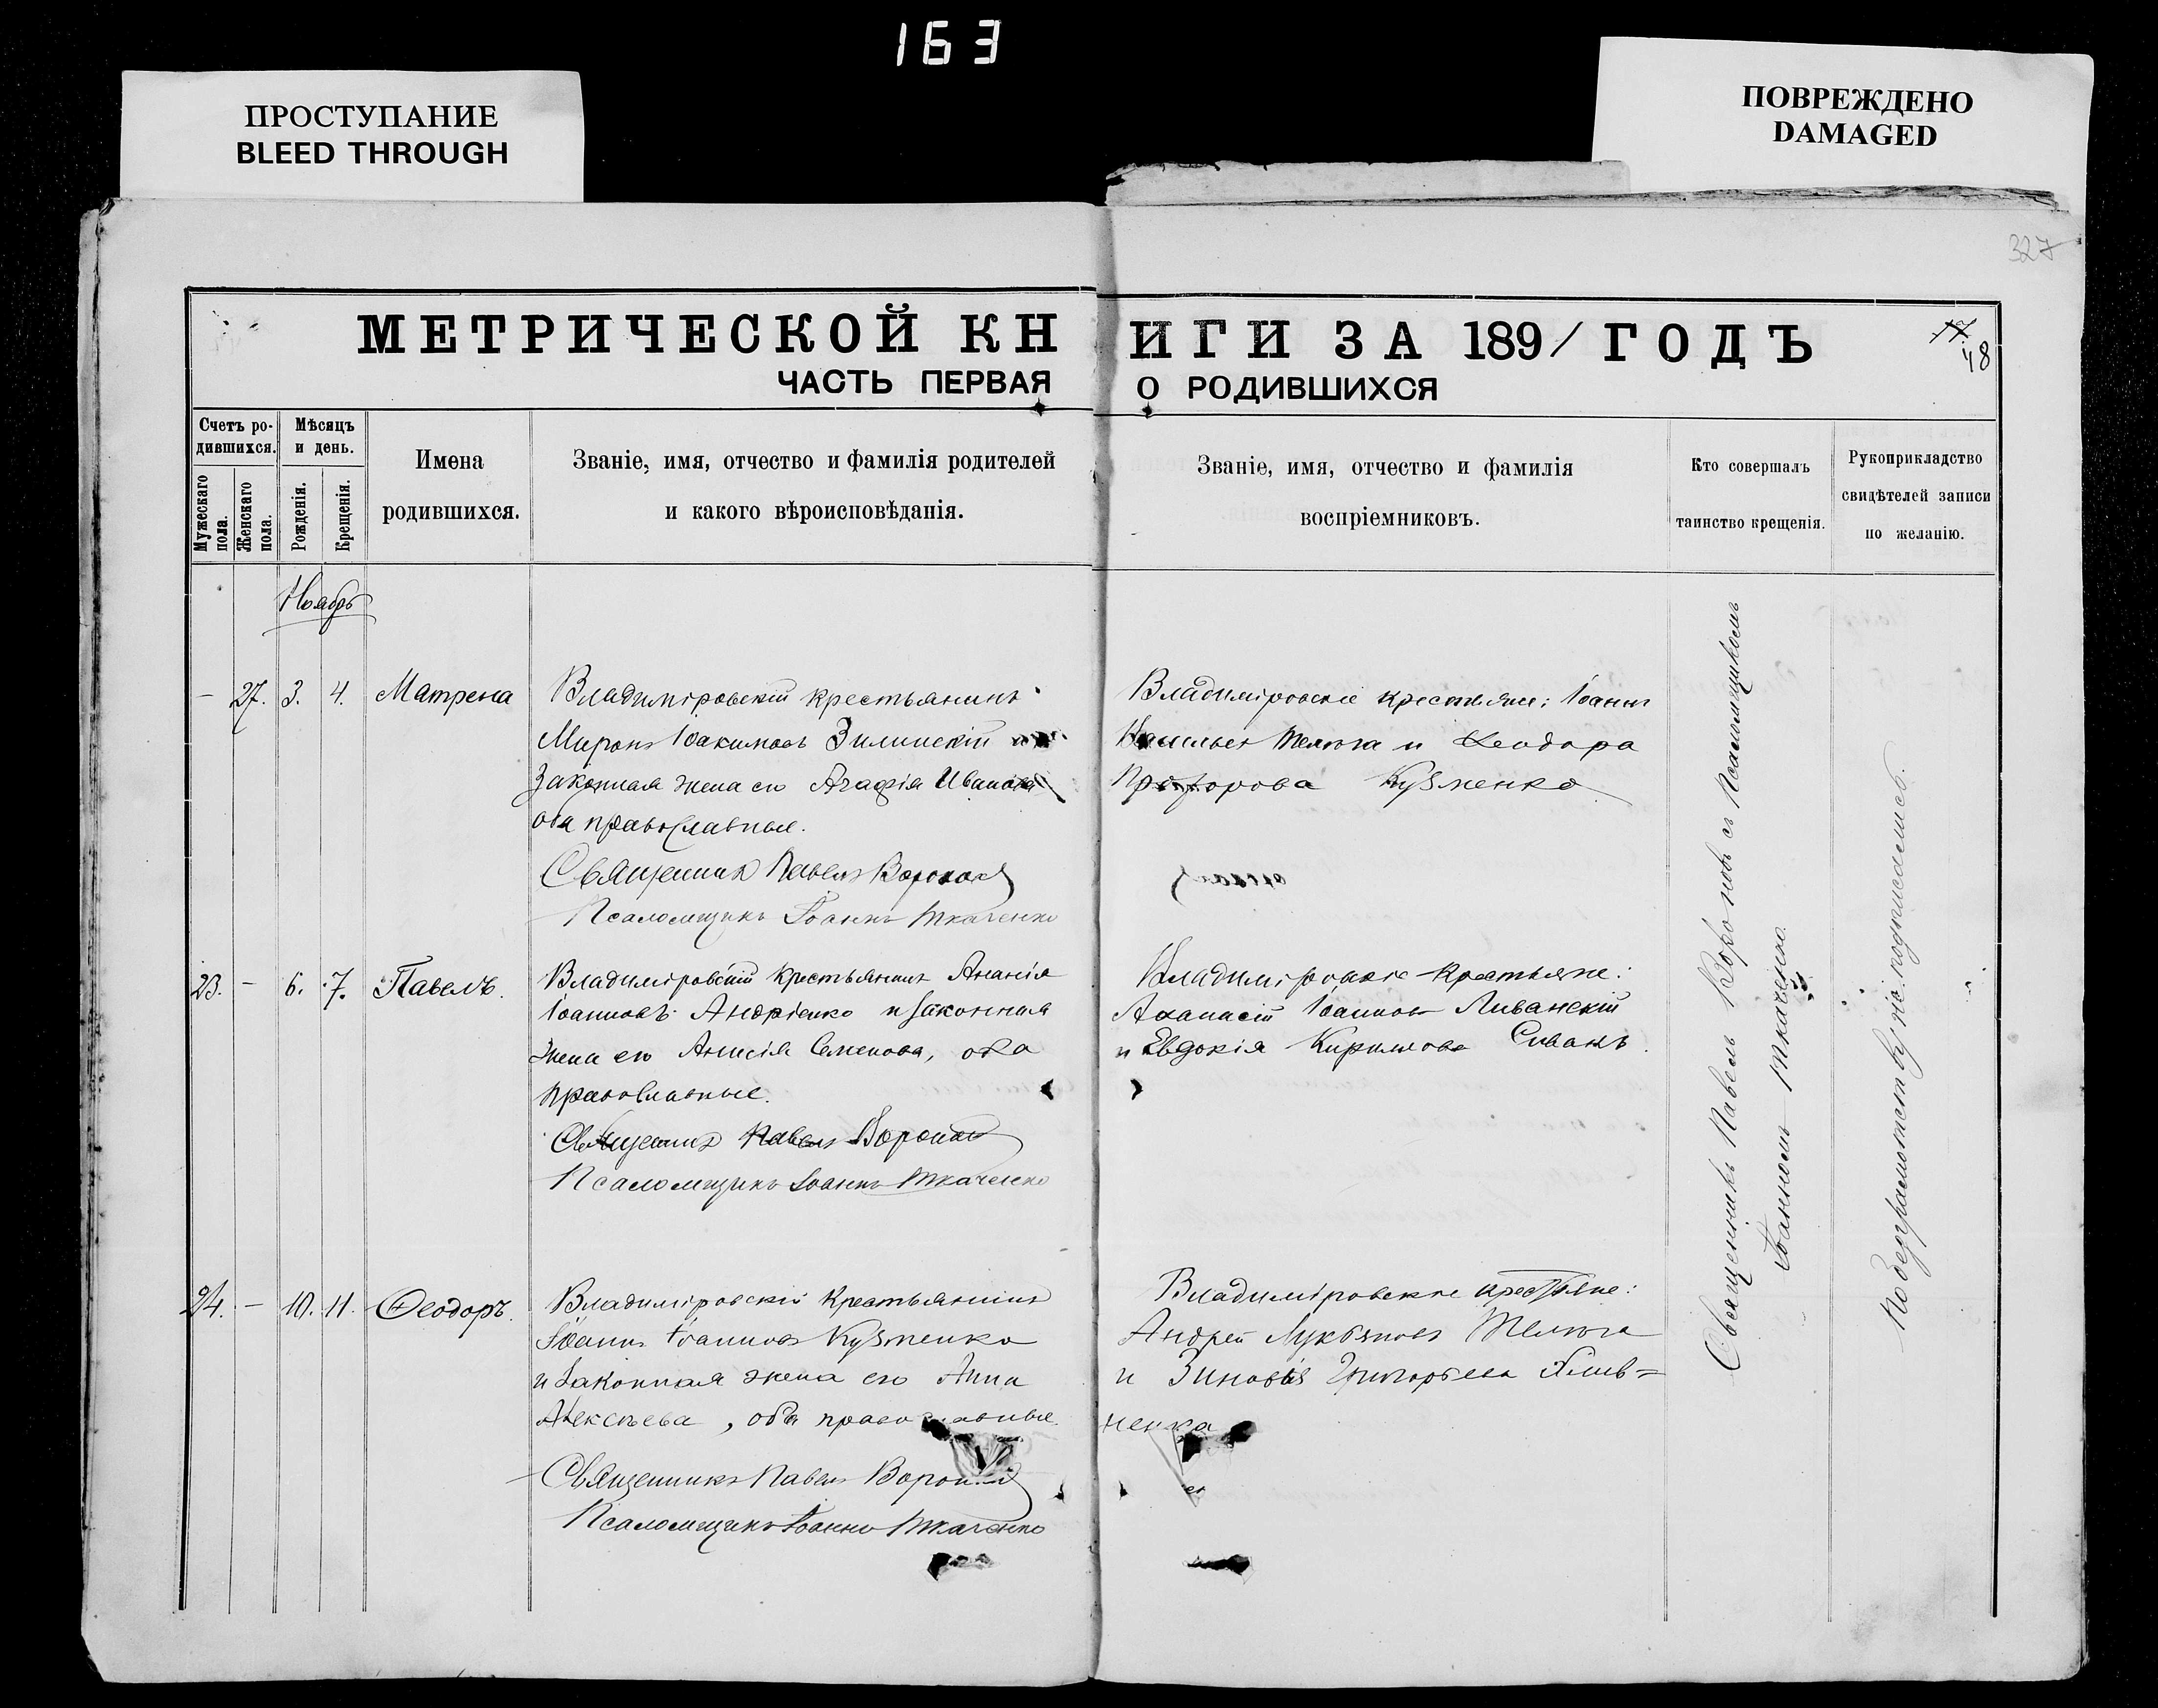 163
ПРОСТУПАНИЕ
BLEED THROUGH
ПОВРЕЖДЕНО
DAMAGED
327
МЕТРИЧЕСКОЙ КНИГИ ЗА 1891 ГОДЪ
17
48
ЧАСТЬ ПЕРВАЯ О РОДИВШИХСЯ
Счетъ ро-
дившихся.
Мужескаго
пола.
Женскаго
пола.
Мѣсяцъ
и день.
Рожденія.
Крещенія.
Имена
родившихся.
Званіе, имя, отчество и фамилія родителей
и какого вѣроисповѣданія.
Званіе, имя, отчество и фамилія
воспріемниковъ.
Кто совершалъ
таинство крещенія.
Рукоприкладство
свидѣтелей записи
по желанію.
Ноябрь
- 27. 3. 4. Матрена
Владиміровскій крестьянинъ
Миронъ Іоакимовъ Зилинскій
законная жена его Агафія Иванова
оба православные.
Священникъ Павелъ Вороновъ
Псаломщикъ Іоаннъ Ткаченко
Владиміровскіе крестьяне: Іоаннъ
Телюга и Ѳеодора
Кузменко
23. - 6. 7. Павелъ.
Владиміровскій крестьянинъ Ананія
Іоанновъ Андріенко и законная
жена его Анисія Семенова, оба
православные.
Священникъ Павелъ Вороновъ
Псаломщикъ Іоаннъ Ткаченко
Владиміровскіе крестьяне:
Аѳанасій Іоанновъ Ливанскій
и Евдокія Кириллова
24. - 10. 11. Ѳеодоръ.
Владиміровскій крестьянинъ
Іоаннъ Іоанновъ Кузменко
и законная жена его Анна
Алексѣева, оба православные.
Священникъ Павелъ Вороновъ
Псаломщикъ Іоаннъ Ткаченко
Владиміровскіе крестьяне:
Андрей Лукьяновъ Телюга
и Зиновія Григорьева
Священникъ Павелъ Вороновъ съ псаломщикомъ
Іоанномъ Ткаченко.
По безграмотству не подписались.